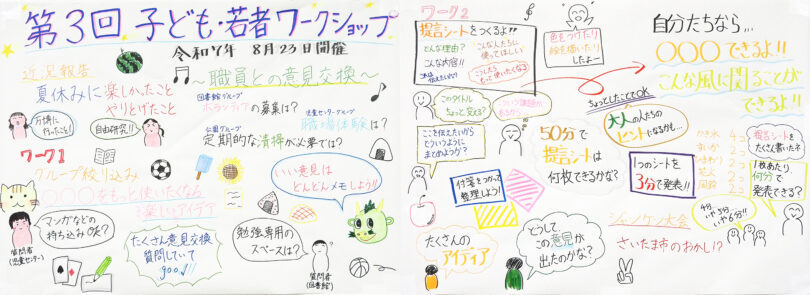 第3回 子ども・若者ワークショップ
令和7年 8月23日開催
近況報告
夏休みに楽しかったこと
やりとげたこと
万博に
行ったこと!
自由研究!!
〜職員との意見交換〜
図書館グループ
ボランティアの募集は?
児童センターグループ
職場体験は?
公園グループ
定期的な清掃が必要では?
ワーク1
グループ絞り込み
〇〇をもっと使いたくなる
楽しいアイデア
いい意見は
どんどんメモしよう!!
マンガなどの
持ち込みOK?
質問者
(児童センター)
たくさん意見交換
質問していて
good!!
勉強専用の
スペースは?
質問者
(図書館)
ワーク2
提言シートをつくるよ!!
どんな理由?
こんな内容!!
こんな人たちに
使ってほしい
こうしたら
もっと使いたくなる
色をつけたり
絵を描いたり
したよー
このタイトル
ちょっと変える?
ついに課題が
ここを伝えたいから
どういうように
まとめようか?
付箋をつかって
整理しよう!
たくさんの
アイディア
どうして
この意見が
出たのかな?
50分で
提言シートは
何枚できるかな?
自分たちなら…
〇〇〇できるよ!!
こんな風に関ることが
できるよ!!
ちょっとしたことでOK
大人の人たちの
ヒントになるかも…
1つのシートを
3分で発表!!
かき氷 4コ
すいか 2コ
ひまわり 2コ
花火 2コ
風鈴 2コ
提言シートを
たくさん書いたネ
1枚あたり
何分で
発表できる?
4分
いや5分…
いや6分!!
ジャンケン大会
さいたま市のおかし!?